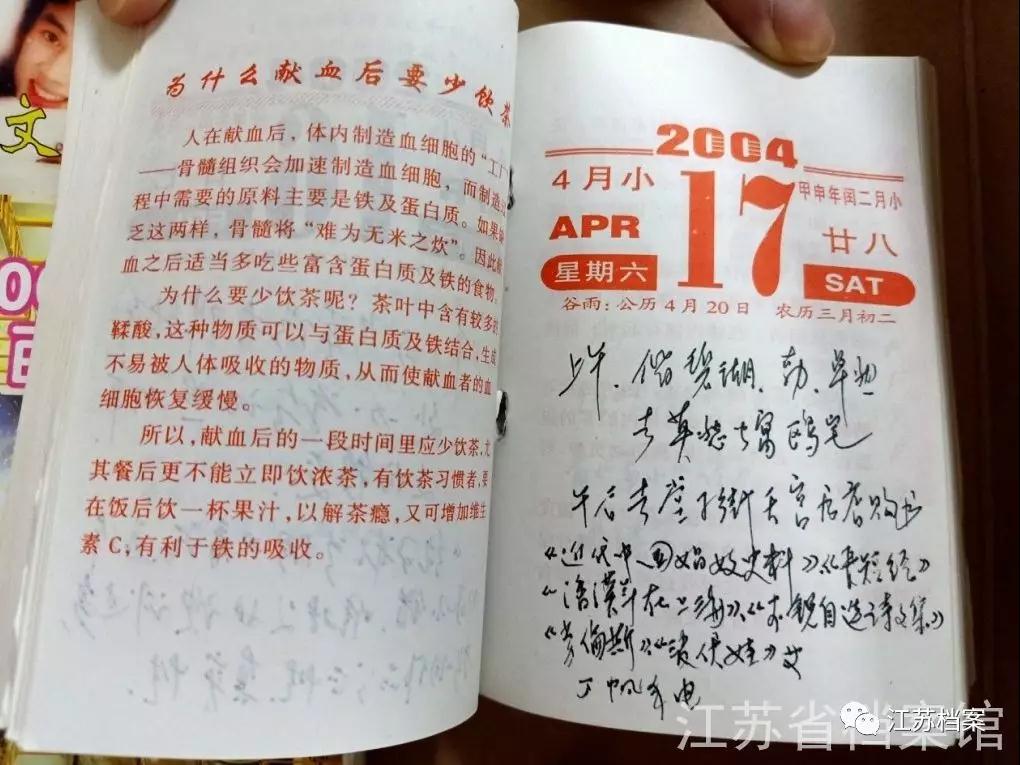 文
为什么献血后要少饮茶
人在献血后，体内制造血细胞的“工厂
——骨髓组织会加速制造血细胞，而制造
程中需要的原料主要是铁及蛋白质。如果
乏这两样，骨髓将“难为无米之炊”。因此
血之后适当多吃些富含蛋白质及铁的食物。
为什么要少饮茶呢？茶叶中含有较多的
鞣酸，这种物质可以与蛋白质及铁结合，生成
不易被人体吸收的物质，从而使献血者的血
细胞恢复缓慢。
所以，献血后的一段时间里应少饮茶，尤
其餐后更不能立即饮浓茶，有饮茶习惯者，要
在饭后饮一杯果汁，以解茶瘾，又可增加维生
素C，有利于铁的吸收。
2004
4月小
17
甲申年闰二月小
APR
廿八
星期六
SAT
谷雨：公历4月20日 农历三月初二
上午、偕碧瑚、勃、
去
午后去 天宫 购书
《近代中国娼妓史料》《长短经》
《潘汉年在上海》《 自选诗文集》
《劳伦斯》《 》
丁帆来电
江苏省档案馆
江苏档案